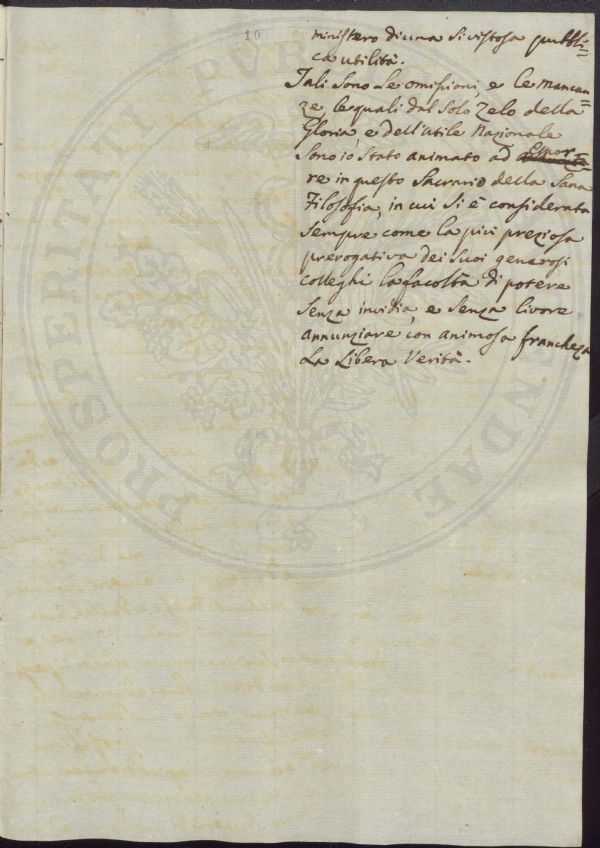 10
ministero di una si vistosa pubbli=
ca utilità.
Tali sono le omissioni, e le mancan
ze le quali dal solo Zelo della
Gloria, e dell'utile Nazionale
sono io stato animato ad Espor=
re in questo Sacrario della Sana
Filosofia, in cui si è considerata
sempre come la più preziosa
prerogativa dei suoi generosi
colleghi la facoltà di potere
senza invidia, e senza livore
annunziare con animosa francheza
La Libera Verità.
PROSPERITATI PUB ANDAE